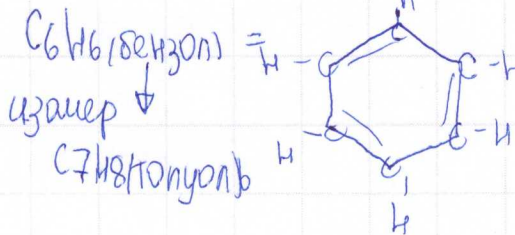 C6H6(бензол) =
изомер
C7H8(толуол)
H
C
H - C
C - H
H - C
C - H
C
H